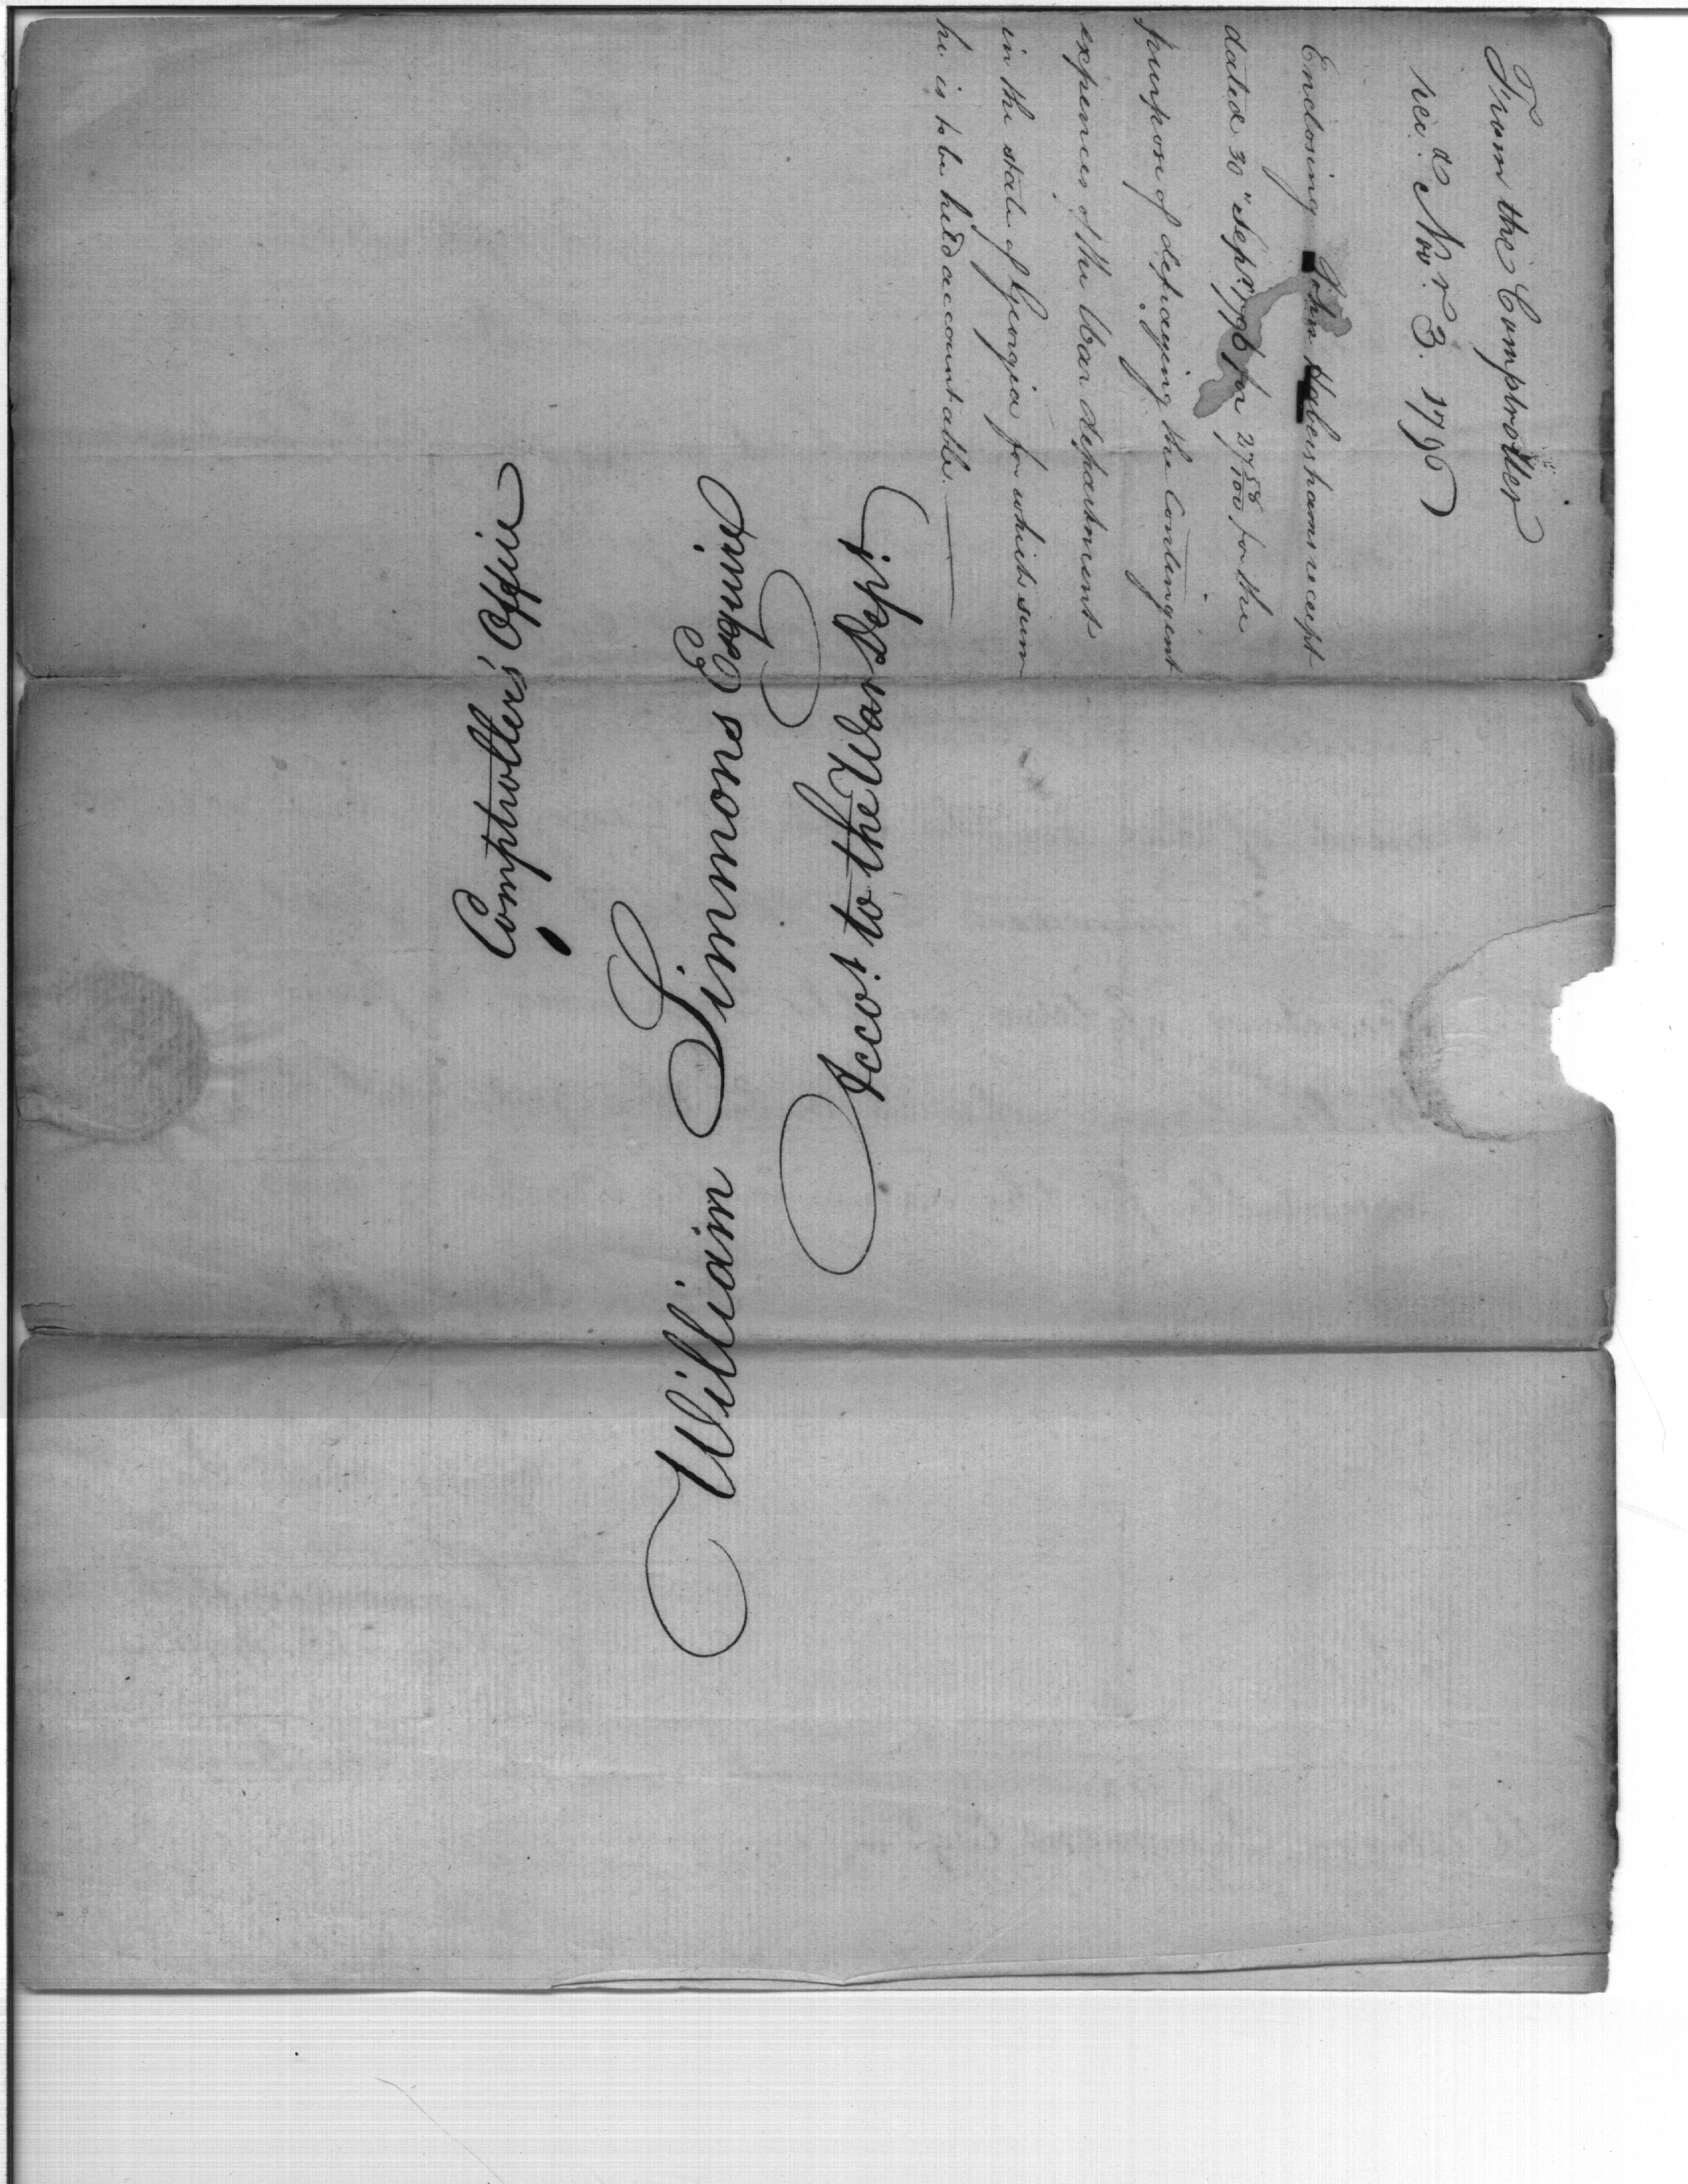 From the Comptroller
rec.d Nov.r 3. 1796
Enclosing John Habershams receipt
dated 30" Sept.r 1796 for 27 58/100 for the
purpose of defraying the Contingent
expences of the War department
in the state of Georgia for which sum
he is to be held accountable.
Comptroller's Office
William Simmons Esquire
Acco.t to the War Dep.t